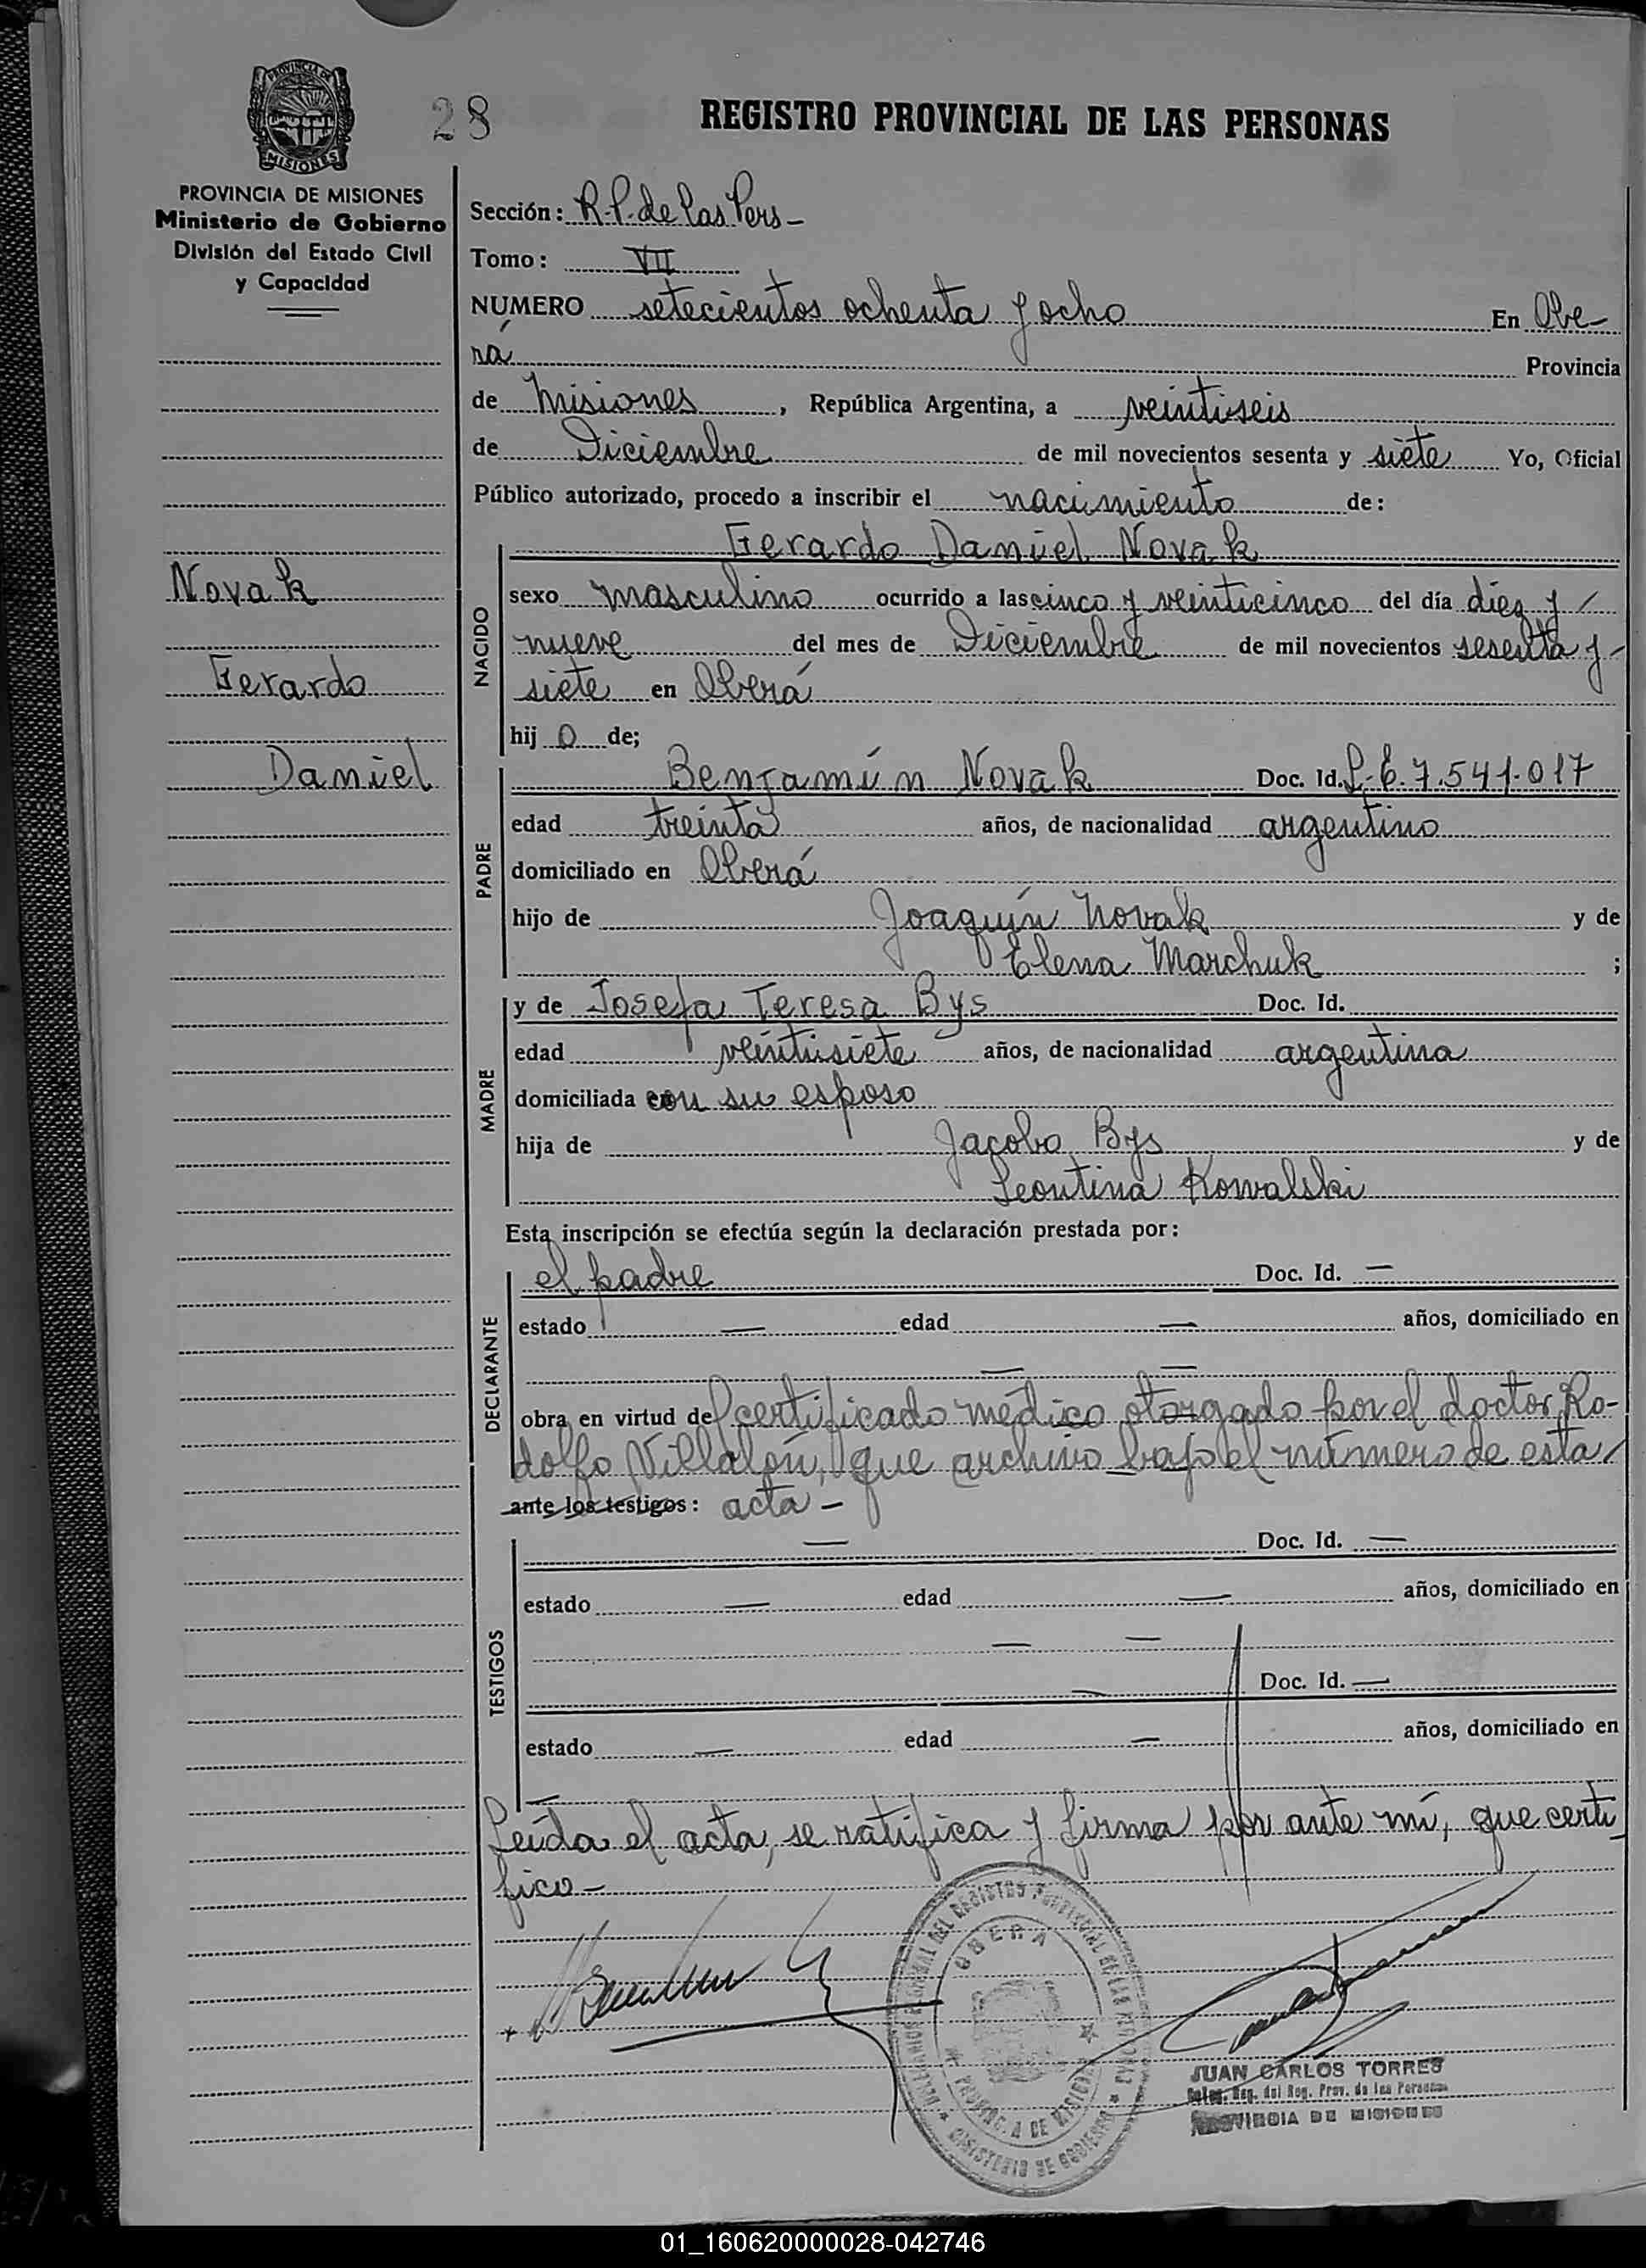 28
REGISTRO PROVINCIAL DE LAS PERSONAS
PROVINCIA DE MISIONES
Ministerio de Gobierno
División del Estado Civil
y Capacidad
Sección: R.P. de las Pers-
Tomo: VII
NUMERO setecientos ochenta y ocho En Obe-
rá Provincia
de Misiones, República Argentina, a veintiseis
de Diciembre de mil novecientos sesenta y siete Yo, Oficial
Público autorizado, procedo a inscribir el nacimiento de:
Novak
Gerardo
Daniel
NACIDO
Gerardo Daniel Novak
sexo masculino ocurrido a las cinco y veinticinco del día diez y /
nueve del mes de Diciembre de mil novecientos sesenta y-
siete en Oberá
hijo de;
PADRE
Benjamín Novak Doc. Id. L.E. 7.541.017
edad treinta años, de nacionalidad argentino
domiciliado en Oberá
hijo de Joaquín Novak y de
Elena Marchuk ;
MADRE
y de Josefa Teresa Bys Doc. Id.
edad veintisiete años, de nacionalidad argentina
domiciliada con su esposo
hija de Jacobo Bys y de
Leontina Kowalski
Esta inscripción se efectúa según la declaración prestada por:
DECLARANTE
el padre Doc. Id. —
estado — edad — años, domiciliado en
— —
obra en virtud del certificado médico otorgado por el doctor Ro-
dolfo Villalón, que archivo bajo el número de esta/
ante los testigos: acta -
TESTIGOS
— Doc. Id. —
estado — edad — años, domiciliado en
— —
— Doc. Id. —
estado — edad — años, domiciliado en
—
Leída el acta, se ratifica y firma por ante mí, que certi
fico-
OBERA
JUAN CARLOS TORRES
Reg. del Reg. Prov. de las Personas
PROVINCIA DE MISIONES
01_160620000028-042746